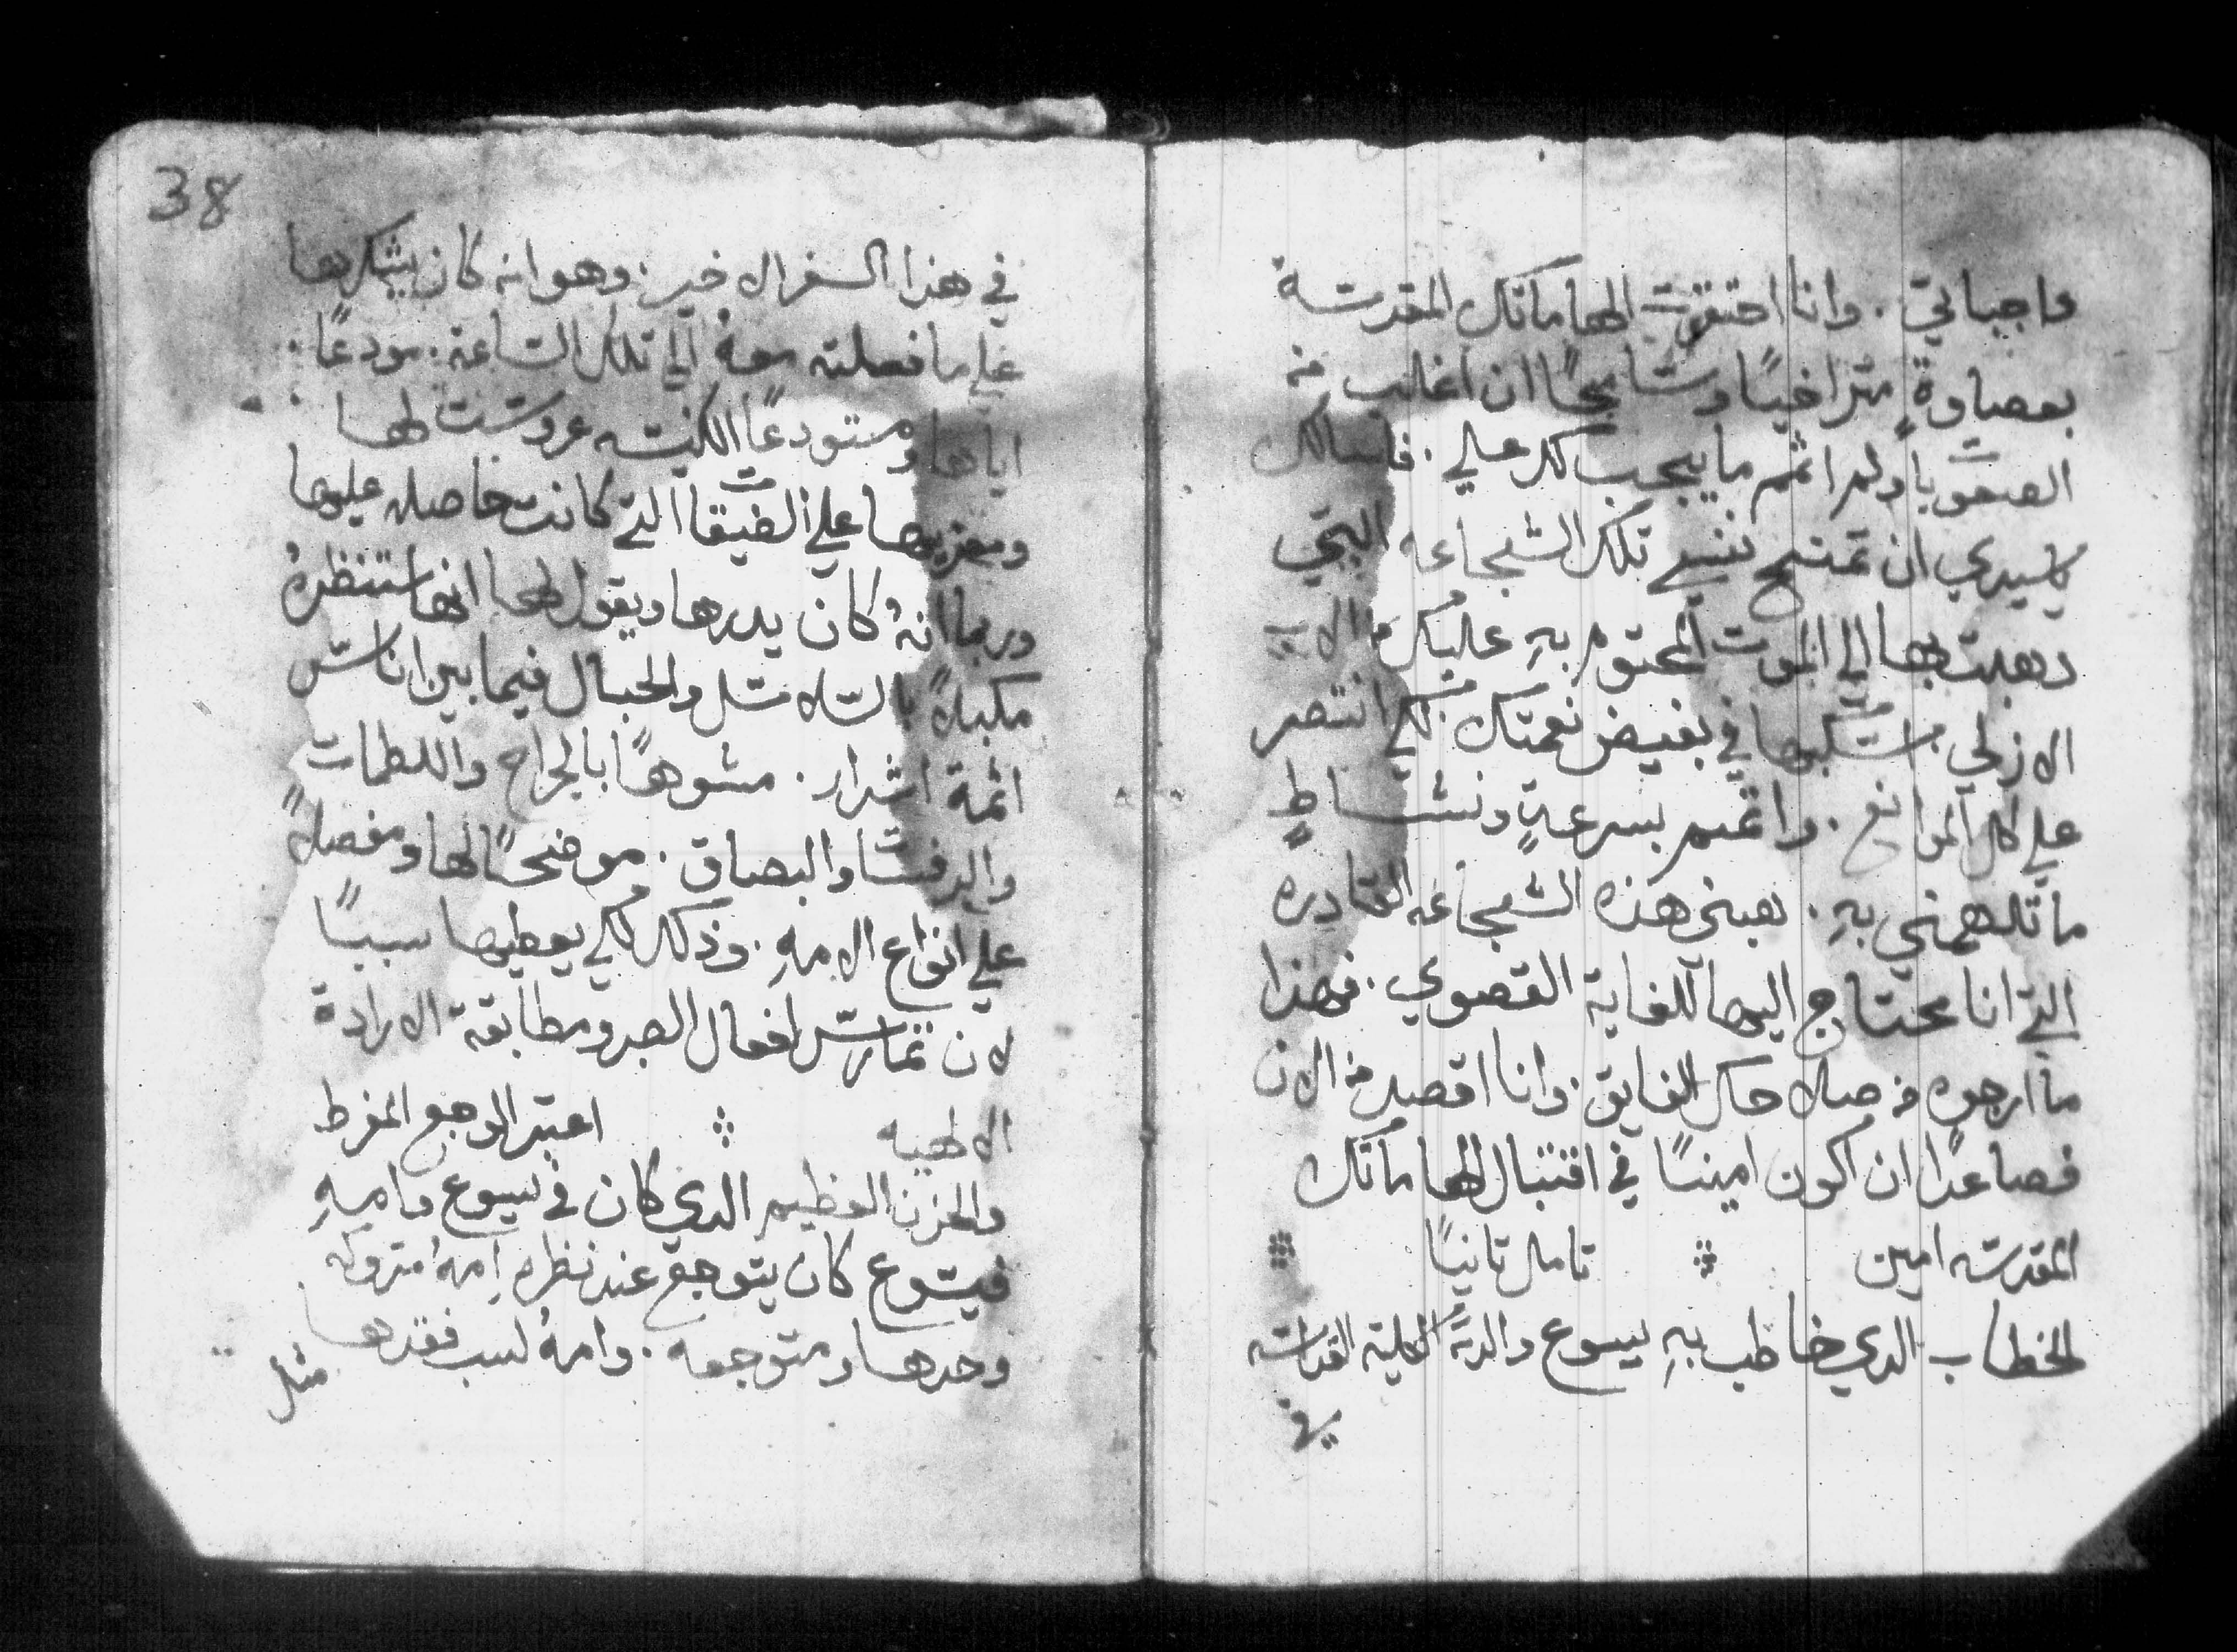 واجباتي. وانا احتقرت الهاماتك المقدسة
بعصاوةٍ متراخيًا ومتسامحًا ان اغلب من
الصعوبات ولم اتمم ما يجب لك علي. فاسالك
يا سيدي ان تمنح نفسي تلك الشجاعه التي
دهبت بها الي الموت المحتوم به عليك من الاب
الازلي. اسكبها في بفيض نعمتك لكي انتصر
علي كل الموانع. واتمم بسرعةٍ ونشاطٍ
ما تلهمني بهِ. هبني هذه الشجاعه القادره
التي انا محتاج اليها للغاية القصوي. فهذا
ما ارجوه من صلاحك الفايق. وانا اقصد من الان
فصاعدًا ان اكون امينًا في اقتبال الهاماتك
المقدسه امين ⁘ تامل تانيًا ⁘
الخطاب الدي خاطب بهِ يسوع والدتهُ الكلية القداسه
في
38
في هذا السفر الاخير. وهو انه كان يشكرها
علي ما فعلته معهُ الي تلك الساعة. مودعًا
اياها ومستودعًا الكنيسه عروسته لها
ومعزيها علي الضيقات التي كانت حاصله عليها
وربما انهُ كان يدرها ويقول لها انها ستنظرهُ
مكبلاً بالسلاسل والحبال فيما بين اناس
اثمة اشرار. مشوهًا بالجراح واللطمات
والرفسات والبصاق. موضحًا لها ومفصلاً
علي انواع الامهِ. وذلك لكي يعطيها سببًا
لان تمارس افعال الصبر ومطابقة الارادة
الالهيه ⁘ اعتبر الوجع المفرط
والحزن العظيم الدي كان في يسوع وامهِ
فيسوع كان يتوجع عند نظره امهُ متروكه
وحدها ومتوجعه. وامهُ لسبب فقدها
مثل